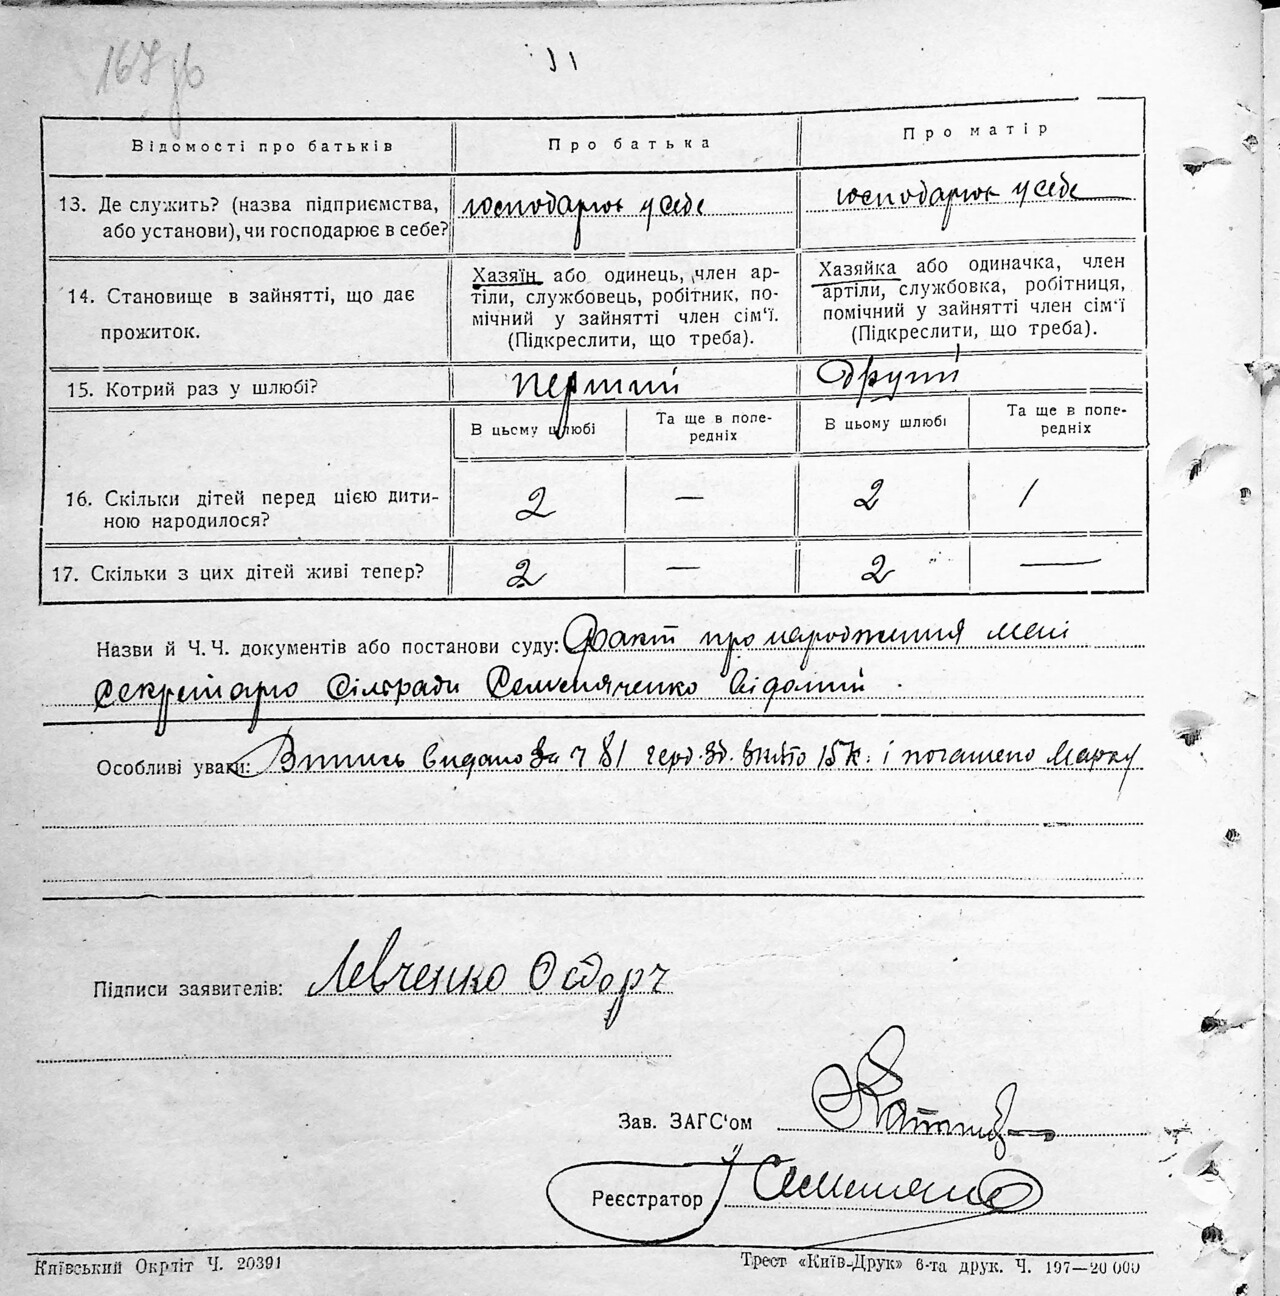 167 зв
Відомості про батьків
Про батька
Про матір
13. Де служить? (назва підприємства, або установи), чи господарює в себе?
господарює у себе
господарює у себе
14. Становище в зайнятті, що дає прожиток.
Хазяїн або одинець, член артіли, службовець, робітник, помічний у зайнятті член сім'ї. (Підкреслити, що треба).
Хазяйка або одиначка, член артіли, службовка, робітниця, помічний у зайнятті член сім'ї (Підкреслити, що треба).
15. Котрий раз у шлюбі?
перший
другий
В цьому шлюбі
Та ще в попередніх
В цьому шлюбі
Та ще в попередніх
16. Скільки дітей перед цією дитиною народилося?
2
—
2
1
17. Скільки з цих дітей живі тепер?
2
—
2
—
Назви й Ч.Ч. документів або постанови суду: Факт про народження мені
секретарю Сільради відомий.
Особливі уваги: Випись видано за ч 81 герб. зб. взято 15 к. і погашено марку
Підписи заявителів: Левченко
Зав. ЗАГС'ом
Реєстратор
Київський Окрліт Ч. 20391
Трест «Київ-Друк» 6-та друк. Ч. 197—20 000